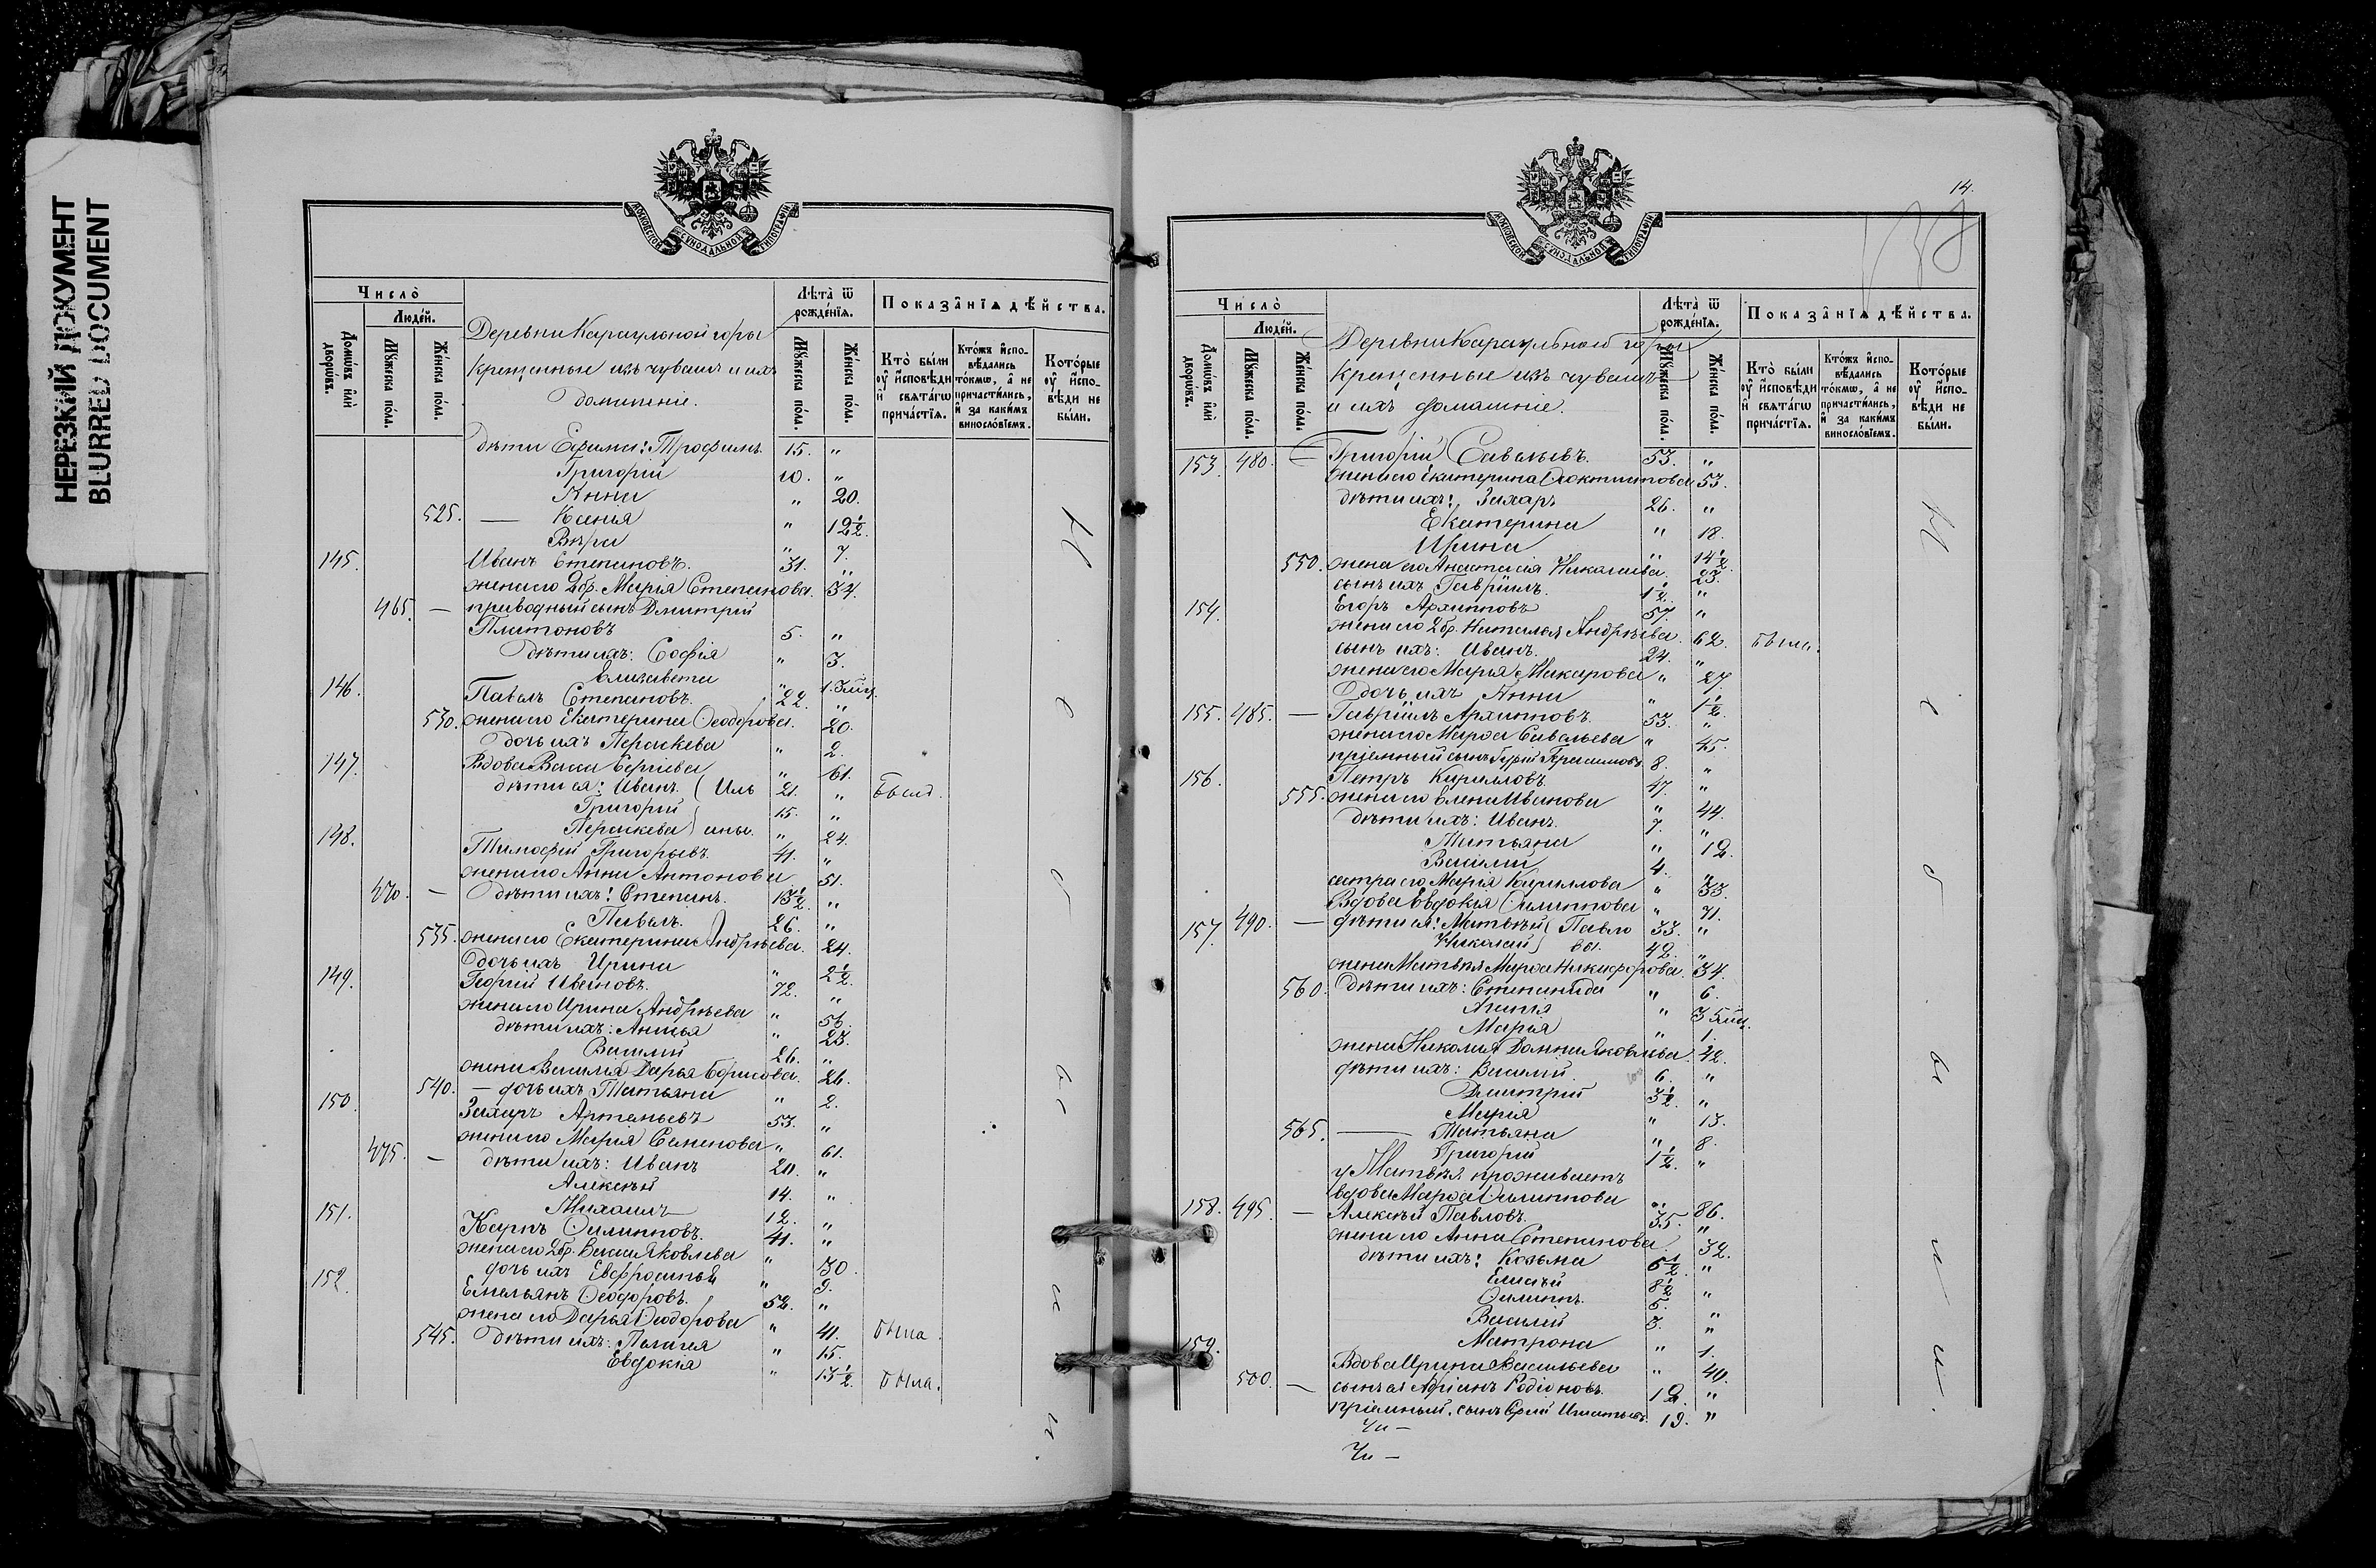 НЕРЕЗКИЙ ДОКУМЕНТ
BLURRED DOCUMENT
МОСКОВСКОЙ СѴНОДАЛЬНОЙ ТИПОГРАФІИ
Число̀
Люде́й.
Домѡ́въ и҆лѝ дворѡ́въ.
Мꙋ́жеска по́ла.
Же́нска по́ла.
Деревни Караульной горы
крещенные изъ чувашъ и ихъ
домашніе.
Лѣта̀ ѿ рожде́нїѧ.
Мꙋ́жеска по́ла.
Же́нска по́ла.
Показа̑нїѧ дѣ́йства.
Кто̀ бы́ли оу҆ и҆сповѣди и҆ свѧта́гѡ прича́стїѧ.
Кто́жъ и҆спо-вѣдались то́кмѡ, а҆ не причасти́лись, и҆ за каки́мъ виносло́вїемъ.
Кото́рые оу҆ и҆спо-вѣди не бы́ли.
дѣти Ефима: Трофимъ 15. "
Григорій 10. "
Анна " 20.
525. — Ксенія " 12½.
Вѣра " 7.
145. Иванъ Степановъ. 31. "
жена его 2 бр. Марія Степанова. 34.
465. — приводный сынъ Дмитрій
Платоновъ 5. "
Дѣти ихъ: Софія " 3.
Елизавета "
146. Павелъ Степановъ. 22. "
530. жена его Екатерина Ѳеодорова. 20.
дочь ихъ Параскева " 2.
147. Вдова Васса Сергіева " 61.
дѣти ея: Иванъ 21. " былъ.
Григорій 15. "
Параскева " 24.
148. Тимофей Григорьевъ. 41. "
жена его Анна Антонова 51.
470. — Дѣти ихъ: Степанъ. 13½. "
Павелъ. 26. "
535. жена его Екатерина Андрѣева. 24.
дочь ихъ Ирина " 2½.
149. Георгій Ивановъ. 72. "
жена его Ирина Андрѣева " 56.
дѣти ихъ: Анисья " 23.
Василій 26. "
жена Василія Дарья Борисова. 26.
540. — дочь ихъ Татьяна " 2.
150. Захаръ Артемьевъ 53. "
жена его Марія Семенова " 61.
475. — дѣти ихъ: Иванъ 20. "
Алексѣй 14. "
Михаилъ 12. "
151. Карпъ Филипповъ. 41. "
жена его 2 бр. Васса Яковлева " 30.
дочь ихъ Евфросинья " 9.
152. Емельянъ Ѳеодоровъ. 52. "
жена его Дарья Ѳеодорова " 41. была.
545. Дѣти ихъ: Пелагея " 15.
Евдокія " 13½. была.
Не бывши.
14.
МОСКОВСКОЙ СѴНОДАЛЬНОЙ ТИПОГРАФІИ
Число̀
Люде́й.
Домѡ́въ и҆лѝ дворѡ́въ.
Мꙋ́жеска по́ла.
Же́нска по́ла.
Деревни Караульной горы
крещенные изъ чувашъ
и ихъ домашніе.
Лѣта̀ ѿ рожде́нїѧ.
Мꙋ́жеска по́ла.
Же́нска по́ла.
Показа̑нїѧ дѣ́йства.
Кто̀ бы́ли оу҆ и҆сповѣди и҆ свѧта́гѡ прича́стїѧ.
Кто́жъ и҆спо-вѣдались то́кмѡ, а҆ не причасти́лись, и҆ за каки́мъ виносло́вїемъ.
Кото́рые оу҆ и҆спо-вѣди не бы́ли.
153. 480. — Григорій Савельевъ. 53. "
жена его Екатерина 53.
дѣти ихъ: Захаръ 26. "
Екатерина " 18.
Ирина " 14½.
550. жена его Анастасія Николаева. 23.
сынъ ихъ Гавріилъ. ½. "
154. Егоръ Архиповъ 57. "
жена его 2 бр. Наталья Андрѣева. 62. была.
сынъ ихъ: Иванъ. 24. "
жена его Марія Макарова " 27.
дочь ихъ Анна " 1½.
155. 485. — Гавріилъ Архиповъ. 53. "
жена его Марѳа Савельева " 45.
пріемный сынъ Герасимовъ 8. "
156. Петръ Кирилловъ. 47. "
555. жена его Елена Иванова " 44.
дѣти ихъ: Иванъ. 7. "
Татьяна " 12.
Василій 4. "
сестра его Марія Кириллова " 33.
Вдова Евдокія Филиппова " 71.
157. 490. — дѣти ея: Матвѣй Павло 33. "
Николай вы. 42. "
жена Матвѣя Марѳа Никифорова. 34.
560. Дѣти ихъ: Степанида " 6.
"
Марія " 1.
жена Николая Домна Яковлева. 42.
дѣти ихъ: Василій 6. "
Дмитрій 3½. "
Марія " 13.
565. — Татьяна " 8.
Григорій 1½. "
у Матвѣя проживаетъ
вдова Марѳа Филиппова " 86.
158. 495. — Алексѣй Павловъ. 35. "
жена его Анна Степанова. 32.
дѣти ихъ: Козьма 6½. "
Елисѣй 8½. "
Филиппъ. 5. "
Василій 3. "
Матрона " 1.
159. Вдова Ирина Васильева " 40.
500. — сынъ ея Адріанъ Родіоновъ. 12. "
пріемный сынъ 19. "
Не бывши.